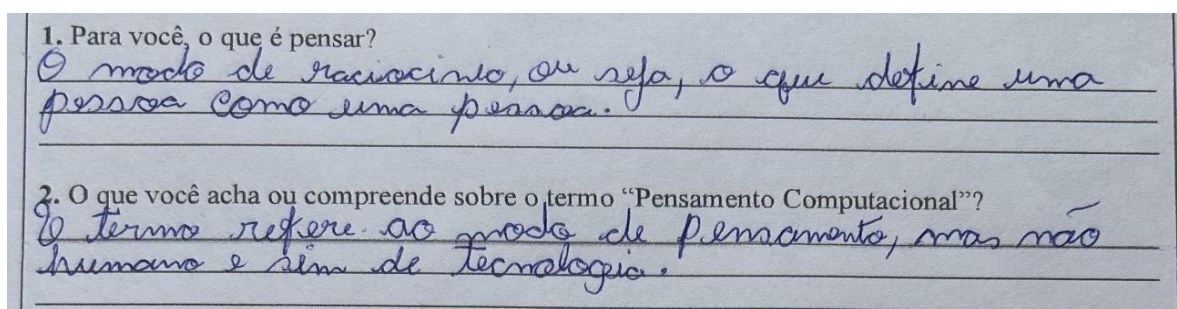 1. Para você, o que é pensar?
O modo de raciocinio, ou seja, o que define uma
pessoa como uma pessoa.
2. O que você acha ou compreende sobre o termo “Pensamento Computacional”?
O termo refere ao modo de pensamento, mas não
humano e sim de tecnologia.